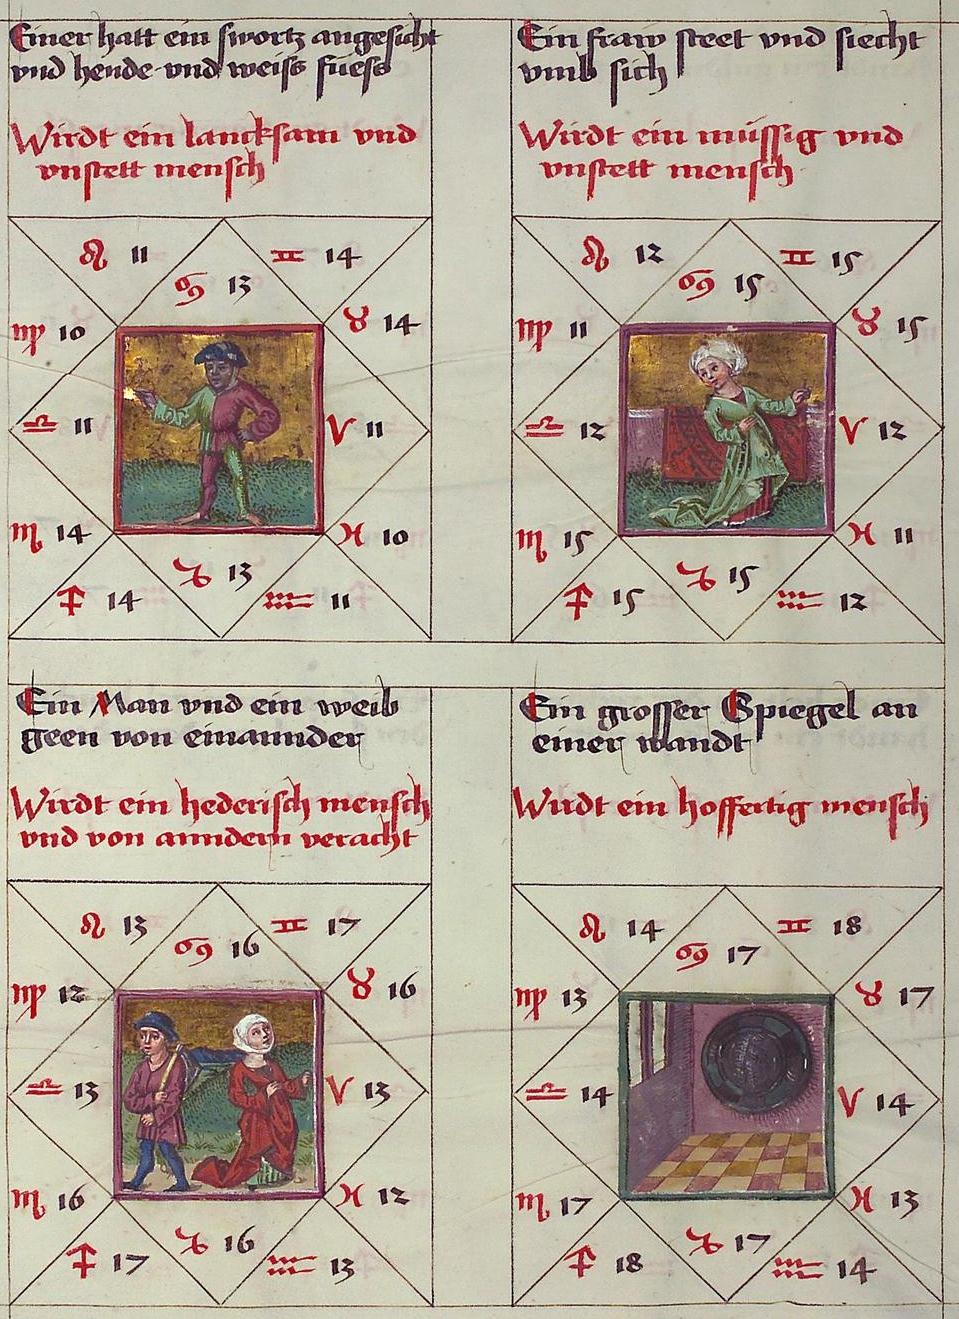 Einer hatt ein swortz angesicht
vnd hende vnd weiss füess
Wirdt ein lancksam vnd
vnstett mensch
♌ 11
♊ 14
♋ 13
♍ 10
♉ 14
♎ 11
♈ 11
♏ 14
♓ 10
♑ 13
♐ 14
♒ 11
Ein fraw steet vnd siecht
vmb sich
Wirdt ein müssig vnd
vnstett mensch
♌ 12
♊ 15
♋ 15
♍ 11
♉ 15
♎ 12
♈ 12
♏ 15
♓ 11
♑ 15
♐ 15
♒ 12
Ein Man vnd ein weib
geen von einannder
Wirdt ein hederisch mensch
vnd von anndern veracht
♌ 13
♊ 17
♋ 16
♍ 12
♉ 16
♎ 13
♈ 13
♏ 16
♓ 12
♑ 16
♐ 17
♒ 13
Ein grosser Spiegel an
einer wandt
Wirdt ein hoffertig mensch
♌ 14
♊ 18
♋ 17
♍ 13
♉ 17
♎ 14
♈ 14
♏ 17
♓ 13
♑ 17
♐ 18
♒ 14